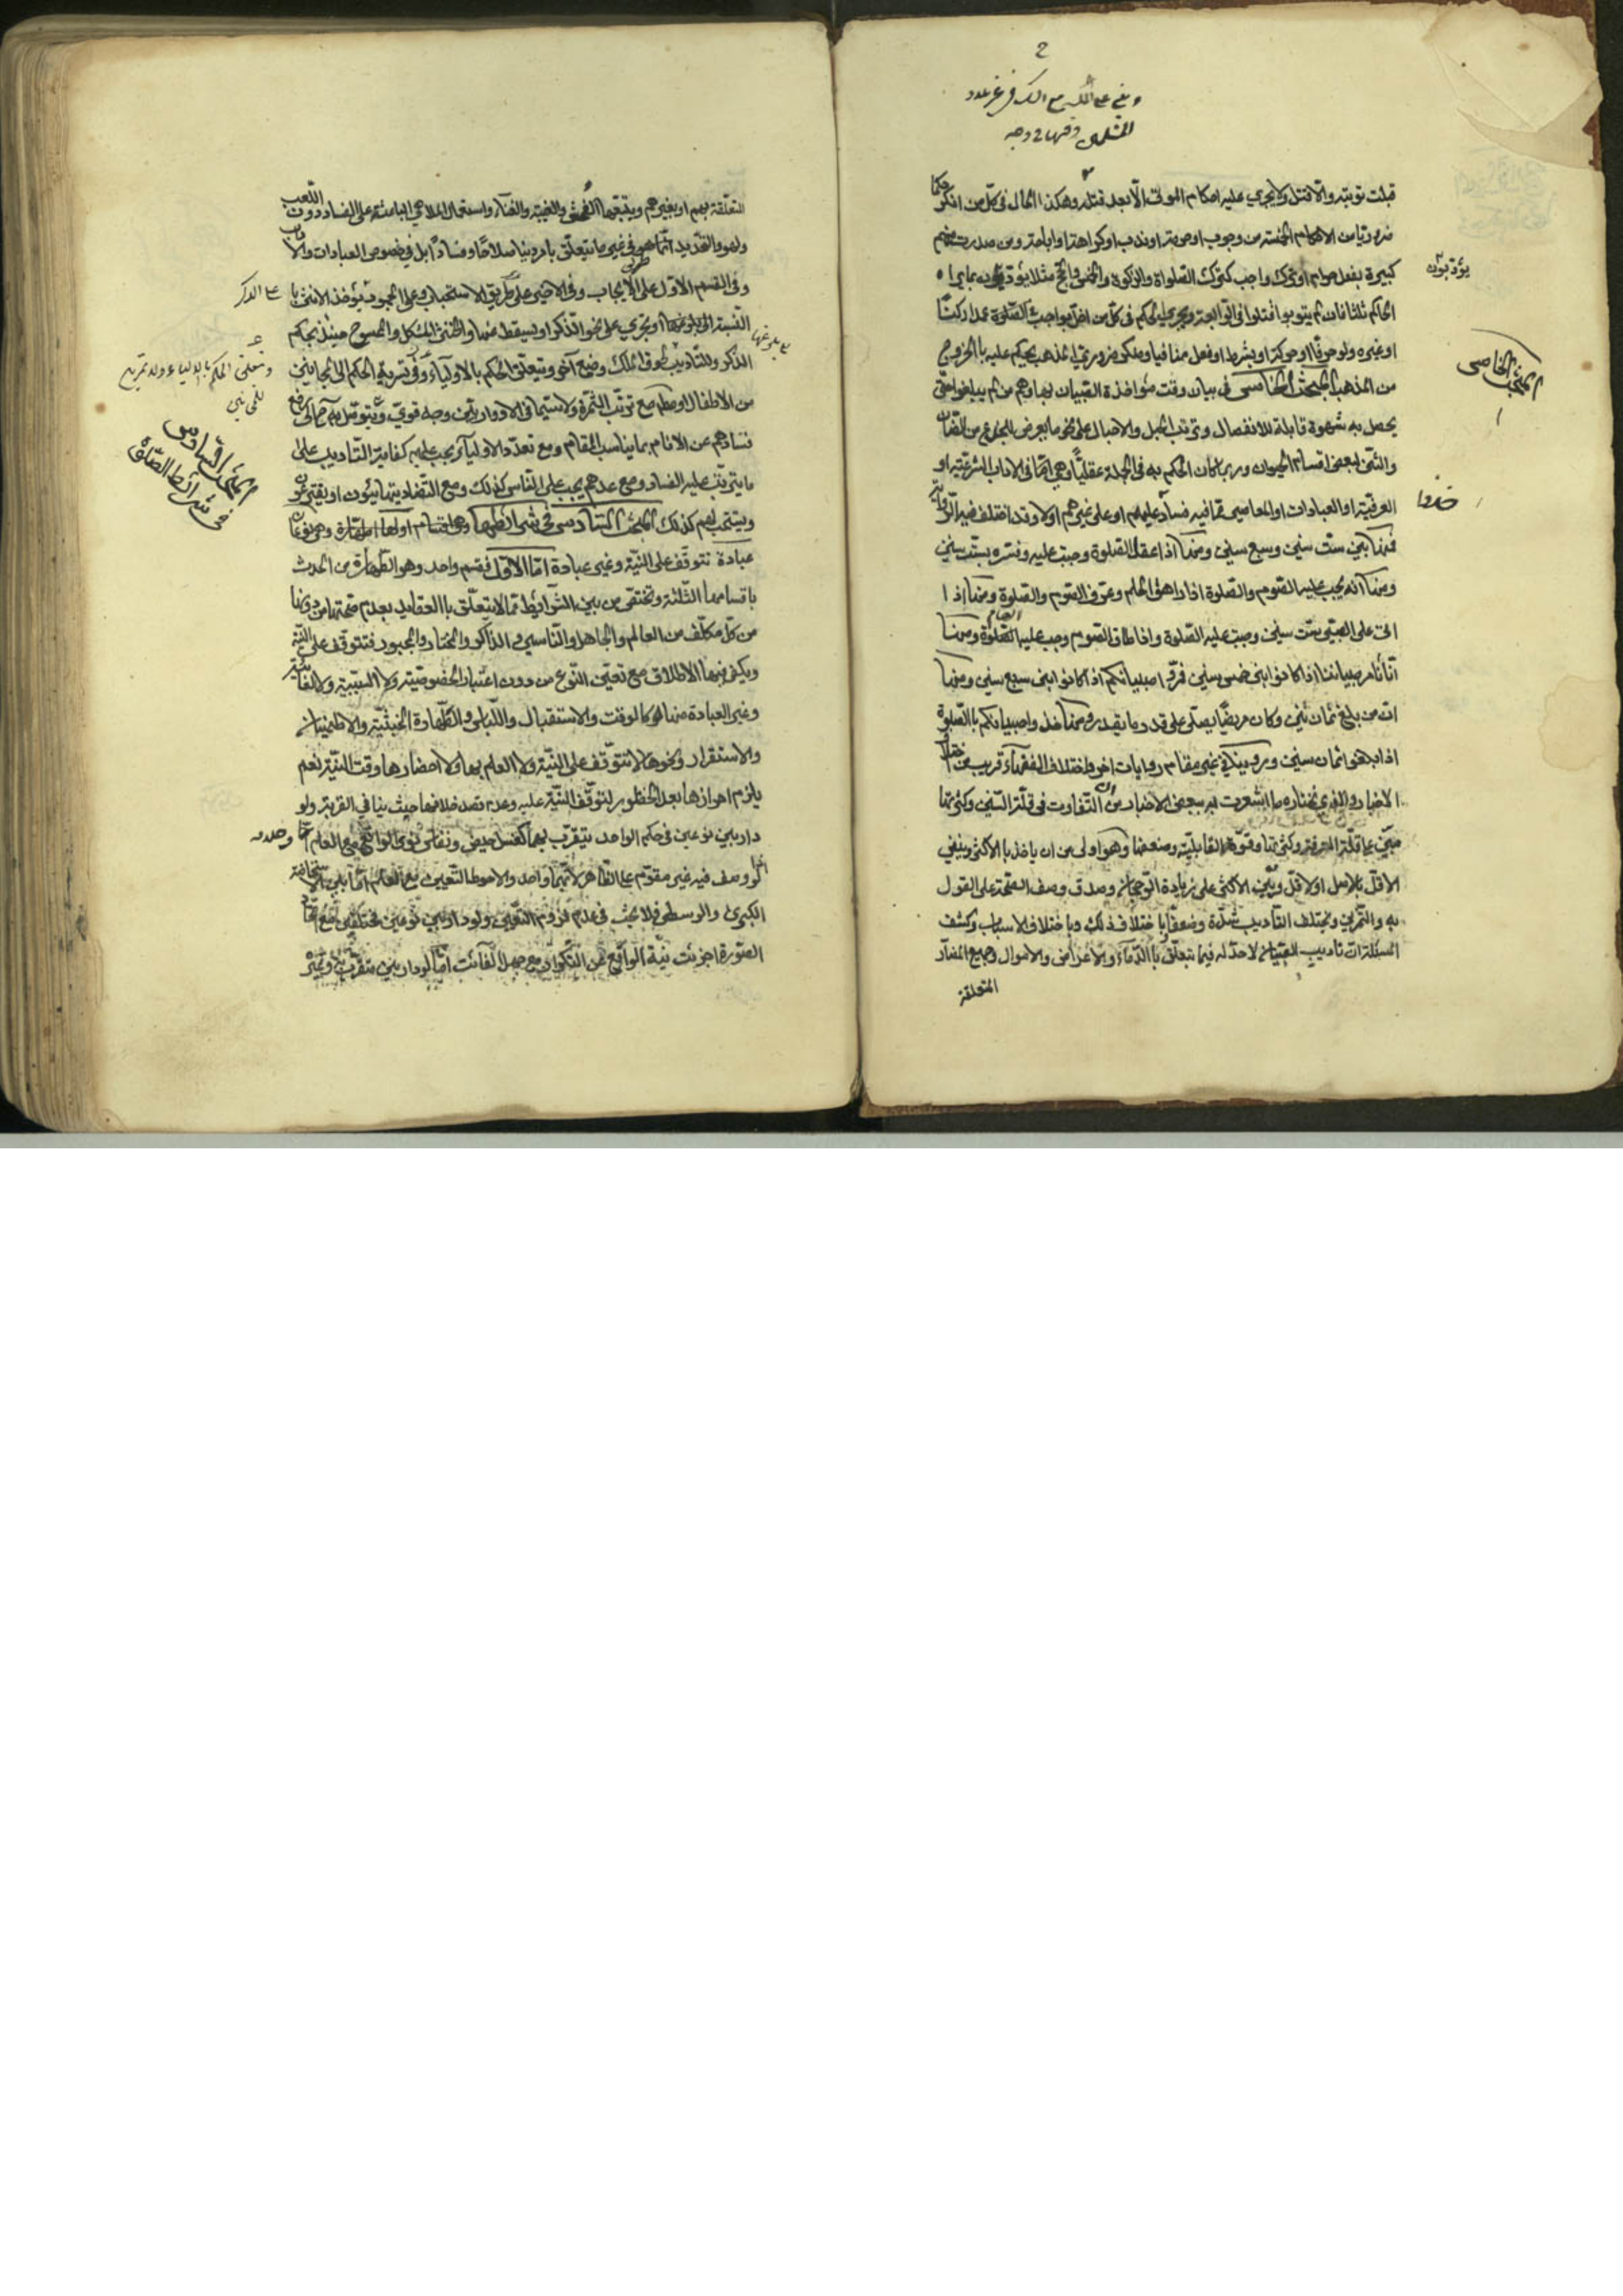 قبلت توبته والا قتل ولا يجري عليه احكام الموتى الا بعد قتله وهكذا الحال في كل من انكر حكما
ضروريا من الاحكام الخمسة من وجوب او حرمة او ندب او كراهة او اباحة ومن صدرت منهم
كبيرة بفعل حرام او ترك واجب كترك الصلواة والزكوة والخمس والحج مثلا يؤدبون بما يراه
الحاكم ثلثا فان لم يتوبوا قتلوا في الرابعة ويجري الحكم في كل من اخل بواجب الصلوة عمدا ركنا
او غيره ولو حرفا او حركة او بشرط او فعل منافيا ومنكر ضروري المذهب يحكم عليه بالخروج
من المذهب المبحث الخامس في بيان وقت مؤاخذة الصبيان بها وهم من لم يبلغوا حتى
يحصل به شهوة قابلة للانفصال وترتب الحبل والاحبال على نحو ما يعرض للجماع من الضأن
والشى لبعض اقسام الحيوان وربما كان الحكم به في الجملة عقليا وهي اما في الاداب الشرعية او
العرفية او العبادات او المعاصي مما فيه فساد عليهم او على غيرهم اولا وقد اختلف فيه الروايات
فمنها بين ست سنين وسبع سنين ومنها اذا عقل الصلوة وجبت عليه وفسره بست سنين
ومنها انه يجب عليه الصوم والصلوة اذا راهق الحلم وعرف الصوم والصلوة ومنها اذا
اتى على الصبي ست سنين وجبت عليه الصلوة واذا طاق الصوم وجب عليه الصيام ومنها
انا نأمر صبياننا اذا كانوا ابنى خمس سنين فمروا صبيانكم اذا كانوا ابنى سبع سنين ومنها
ان من بلغ ثمان سنين وكان مريضا يصلى على قدر ما يقدر ومنها خذوا صبيانكم بالصلوة
اذا بلغوا ثمان سنين وروينا في غير مقام روايات اخر واختلاف الفقهاء قريب من اختلاف
الاخبار والذي نختاره ما اشعرت به بعض الاخبار من ان التفاوت في قلة السنين وكثرتها
مبني على قلة المعرفة وكثرتها وقوة القابلية وضعفها وهو اولى من ان ياخذ بالاكثر وينفي
الاقل بالاصل او الاقل ويبنى الاكثر على زيادة الرجحان وصدق وصف الصحة على القول
به والتمرين ويختلف التأديب شدة وضعفا باختلاف ذلك وباختلاف الاسباب وكشف
المسئلة ان تاديب الصبيان لا حد له فيما يتعلق بالدماء والاعراض والاموال وجميع المضار
المتعلقة
يؤدبون
المبحث الخامس
خذوا
المتعلقة بهم او بغيرهم ويتبعها الفحش والغيبة والغناء واستعمال الملاهي الباعثة على الفساد دون اللعب
ولهو والتحديد انما هو في غير ما يتعلق بامر دنيا صلاحا وفسادا بل في خصوص العبادات والاداب
وفي القسم الاول على الايجاب وفي الاخير على طريق الاستحباب وعلى الوجوب يؤخذ الانثى با
النسبة الى بلوغها ويجري على نحو الذكر او يسقط عنها والخنثى المشكل والممسوح حينئذ بحكم
الذكر وللتأديب طوق الملك وضع آخر ويتعلق الحكم بالاولياء وفي تسرية الحكم الى المجانين
من الاطفال او مطلقا مع ترتب الثمرة ولا سيما في الادوار بين وجه قوي ويتوصل به حالى رفع
فسادهم عن الانام بما يناسب المقام ومع تعدد الاولياء يجب عليهم كفاية التاديب على
ما يترتب عليه الفساد ومع عدمهم يجب على الناس كذلك ومع التضاد يتهايئون او يقترعون
ويستحب لهم كذلك المبحث السادس في شرائطها وهي اقسام اولها الطهارة وهي نوعان
عبادة تتوقف على النية وغير عبادة اما الاول فقسم واحد وهو الطهارة من الحدث
باقسامها الثلثة وتختص من بين الشرائط مما لا يتعلق بالعقايد بعدم صحتها من دونها
من كل مكلف من العالم والجاهل والناسي والذاكر والمختار والمجبور فتتوقف على النية
ويكفي فيها الاطلاق مع تعيين النوع من دون اعتبار الخصوصية ولا السببية ولا الغائية
وغير العبادة منها كالوقت والاستقبال واللباس والطهارة الخبثية والاطمينان
والاستقرار ونحوها لا تتوقف على النية ولا العلم بها ولا احضارها وقت النية نعم
يلزم احرازها بعد الخطور لتوقف النية عليه وعدم قصد خلافها حيث ينافي القربة ولو
دار بين نوعين في حكم الواحد يتقرب بهما كغسل حيض ونفاس نوى الواقع مع العلم
او وصف فيه غير مقوم على الظاهر لانهما واحد والاحوط التعيين مع العلم اما بين الاستحاضة
الكبرى والوسطى فلا بحث في عدم لزوم التعيين ولو دار بين نوعين مختلفين مع اتحاد
الصورة اجزئت نية الواقع عن التكرار مع جهل الفائت اما لو دار بين متقرب به وغيره
على الذكر
بلوغها
ويتعلق الحكم بالاولياء
المبحث السادس
في شرائط الصلوة